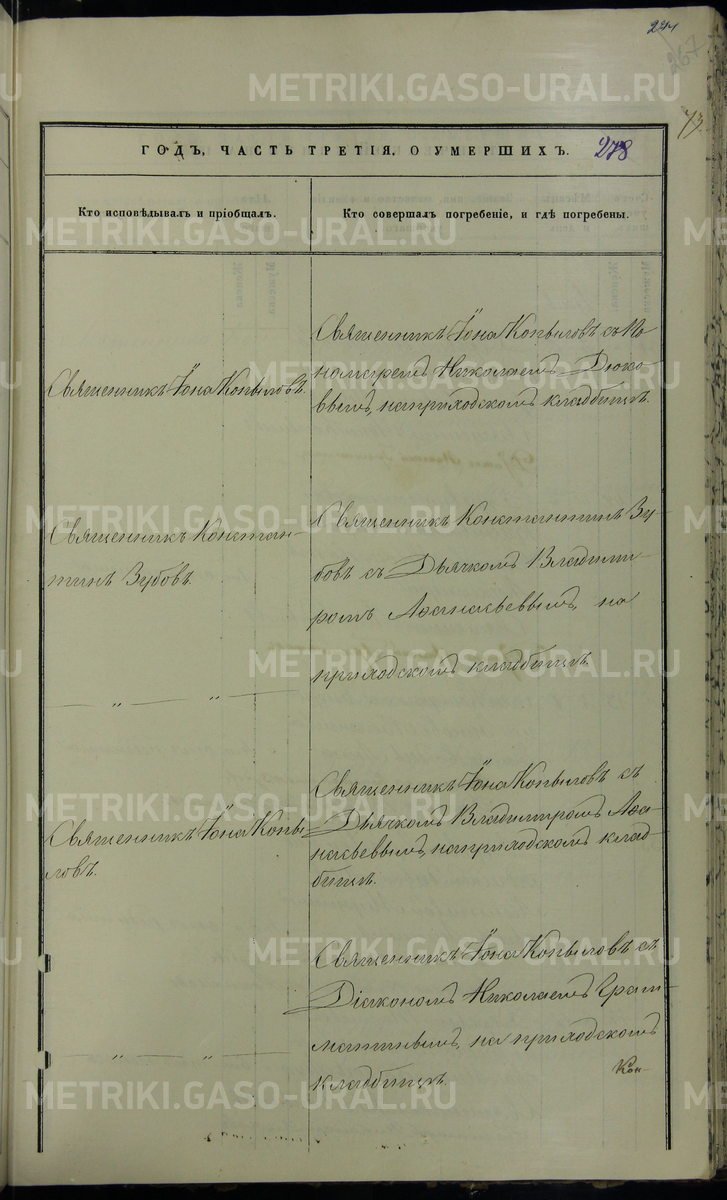 274
267
73
ГОДЪ, ЧАСТЬ ТРЕТІЯ, О УМЕРШИХЪ.
278
Кто исповѣдывалъ и пріобщалъ.
Кто совершалъ погребеніе, и гдѣ погребены.
Священникъ Іона Копыловъ.
Священникъ Іона Копыловъ съ По
номаремъ Николаемъ Дюко
вымъ, на приходскомъ кладбищѣ.
Священникъ Констан-
тинъ Зубовъ.
Священникъ Константинъ Зу-
бовъ съ Дьячкомъ Владими-
ромъ Аѳанасьевымъ, на
приходскомъ кладбищѣ.
— „ — „ —
Священникъ Іона Копы-
ловъ.
Священникъ Іона Копыловъ съ
Дьячкомъ Владимромъ Аѳа-
насьевымъ, на приходскомъ клад-
бищѣ.
— „ — „ —
Священникъ Іона Копыловъ съ
Діакономъ Николаемъ
на приходскомъ
кладбищѣ.
METRIKI.GASO-URAL.RU